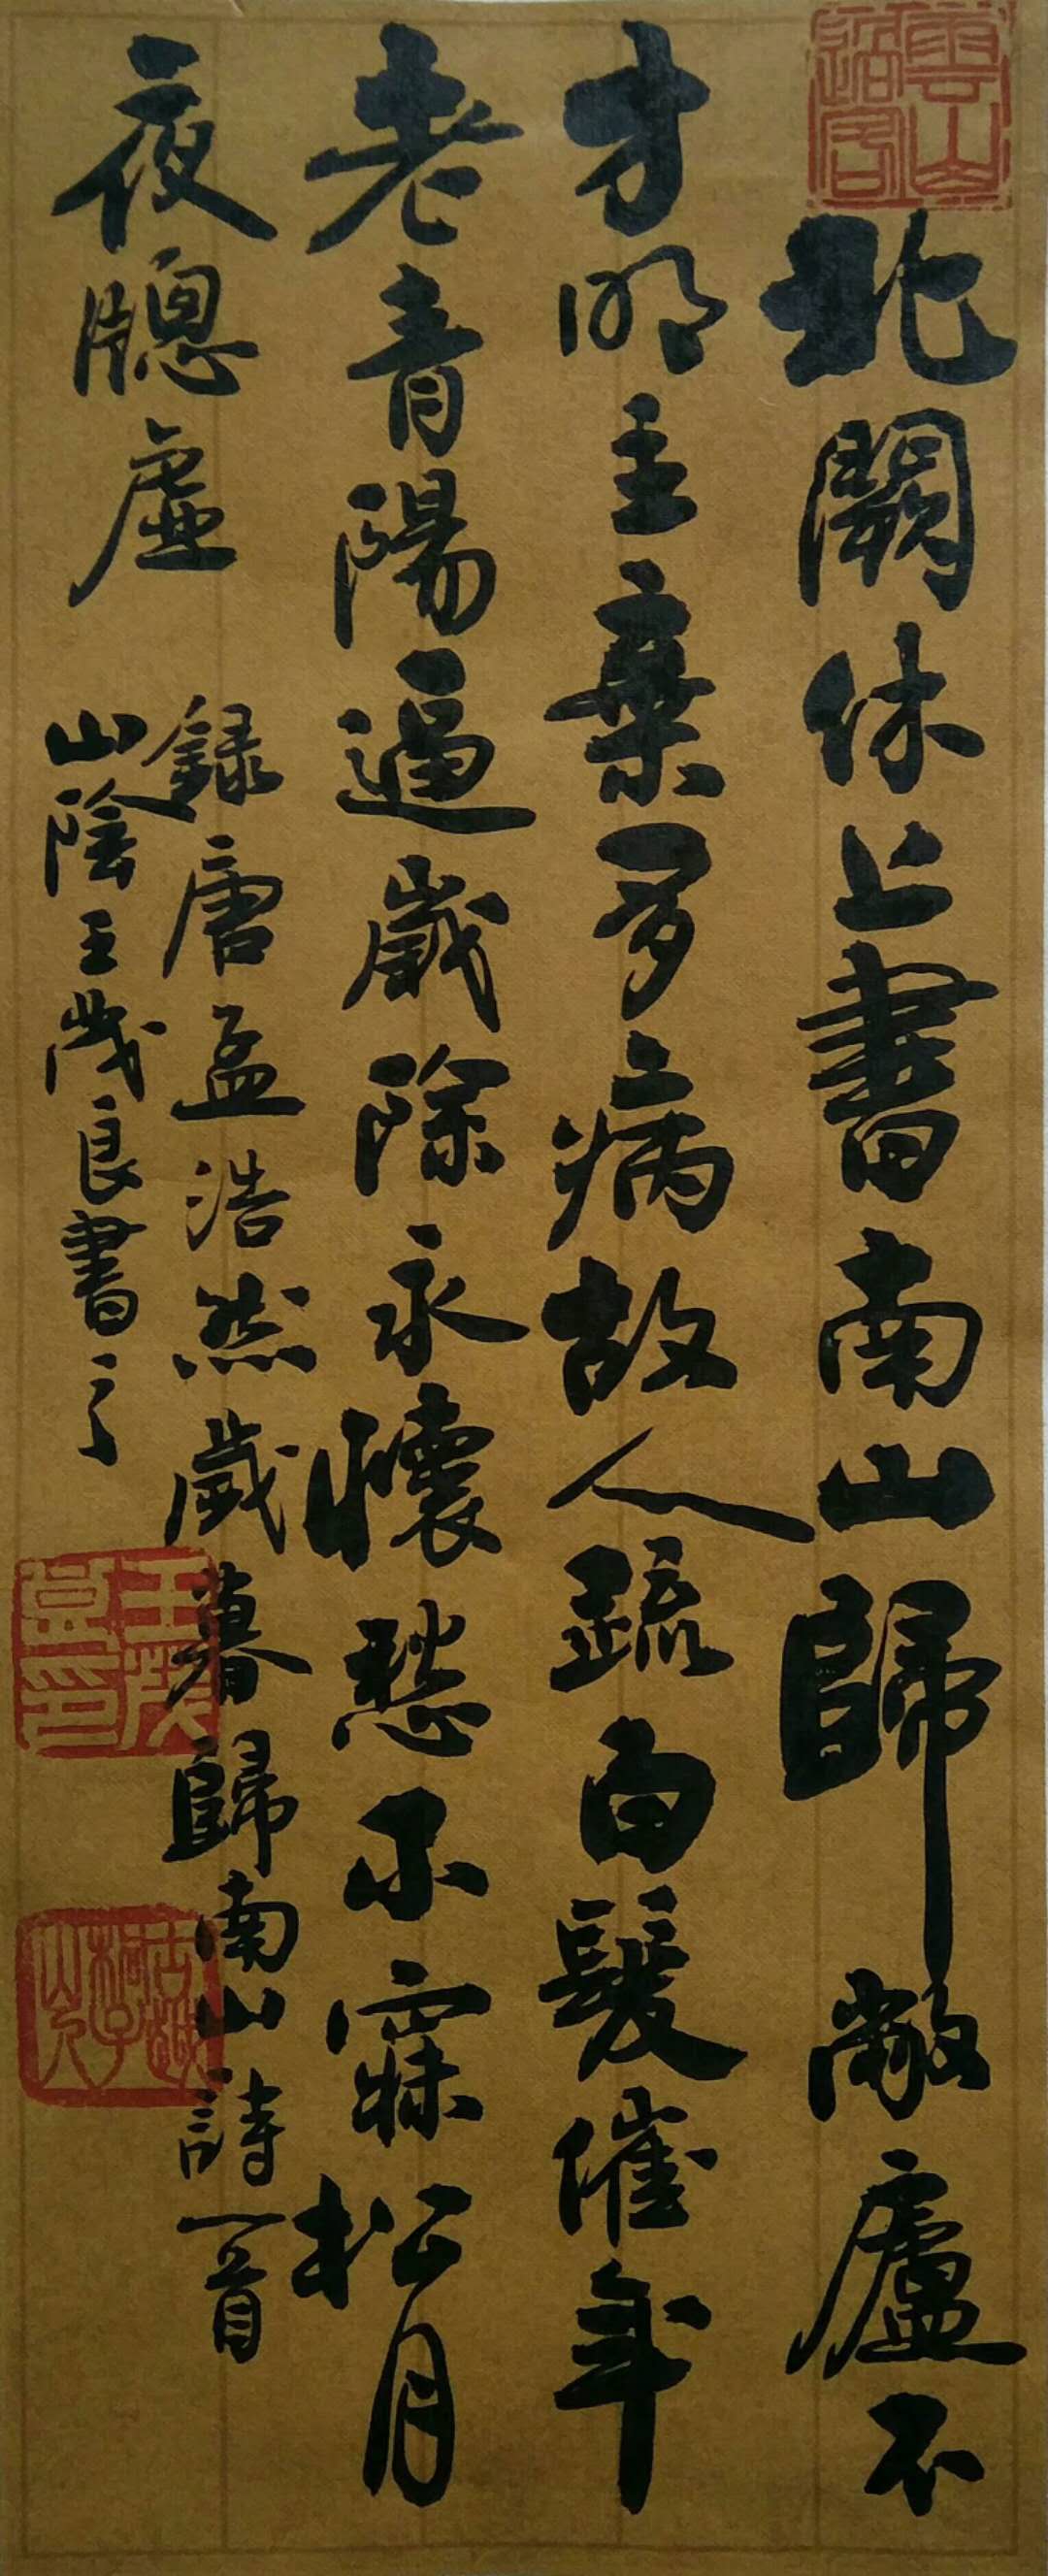 北闕休上書南山歸敝廬不
才明主棄多病故人疏白髮催年
老青陽逼歲除永懷愁不寐松月
夜牕虛
録唐孟浩然歲暮歸南山詩一首
山陰王茂良書之